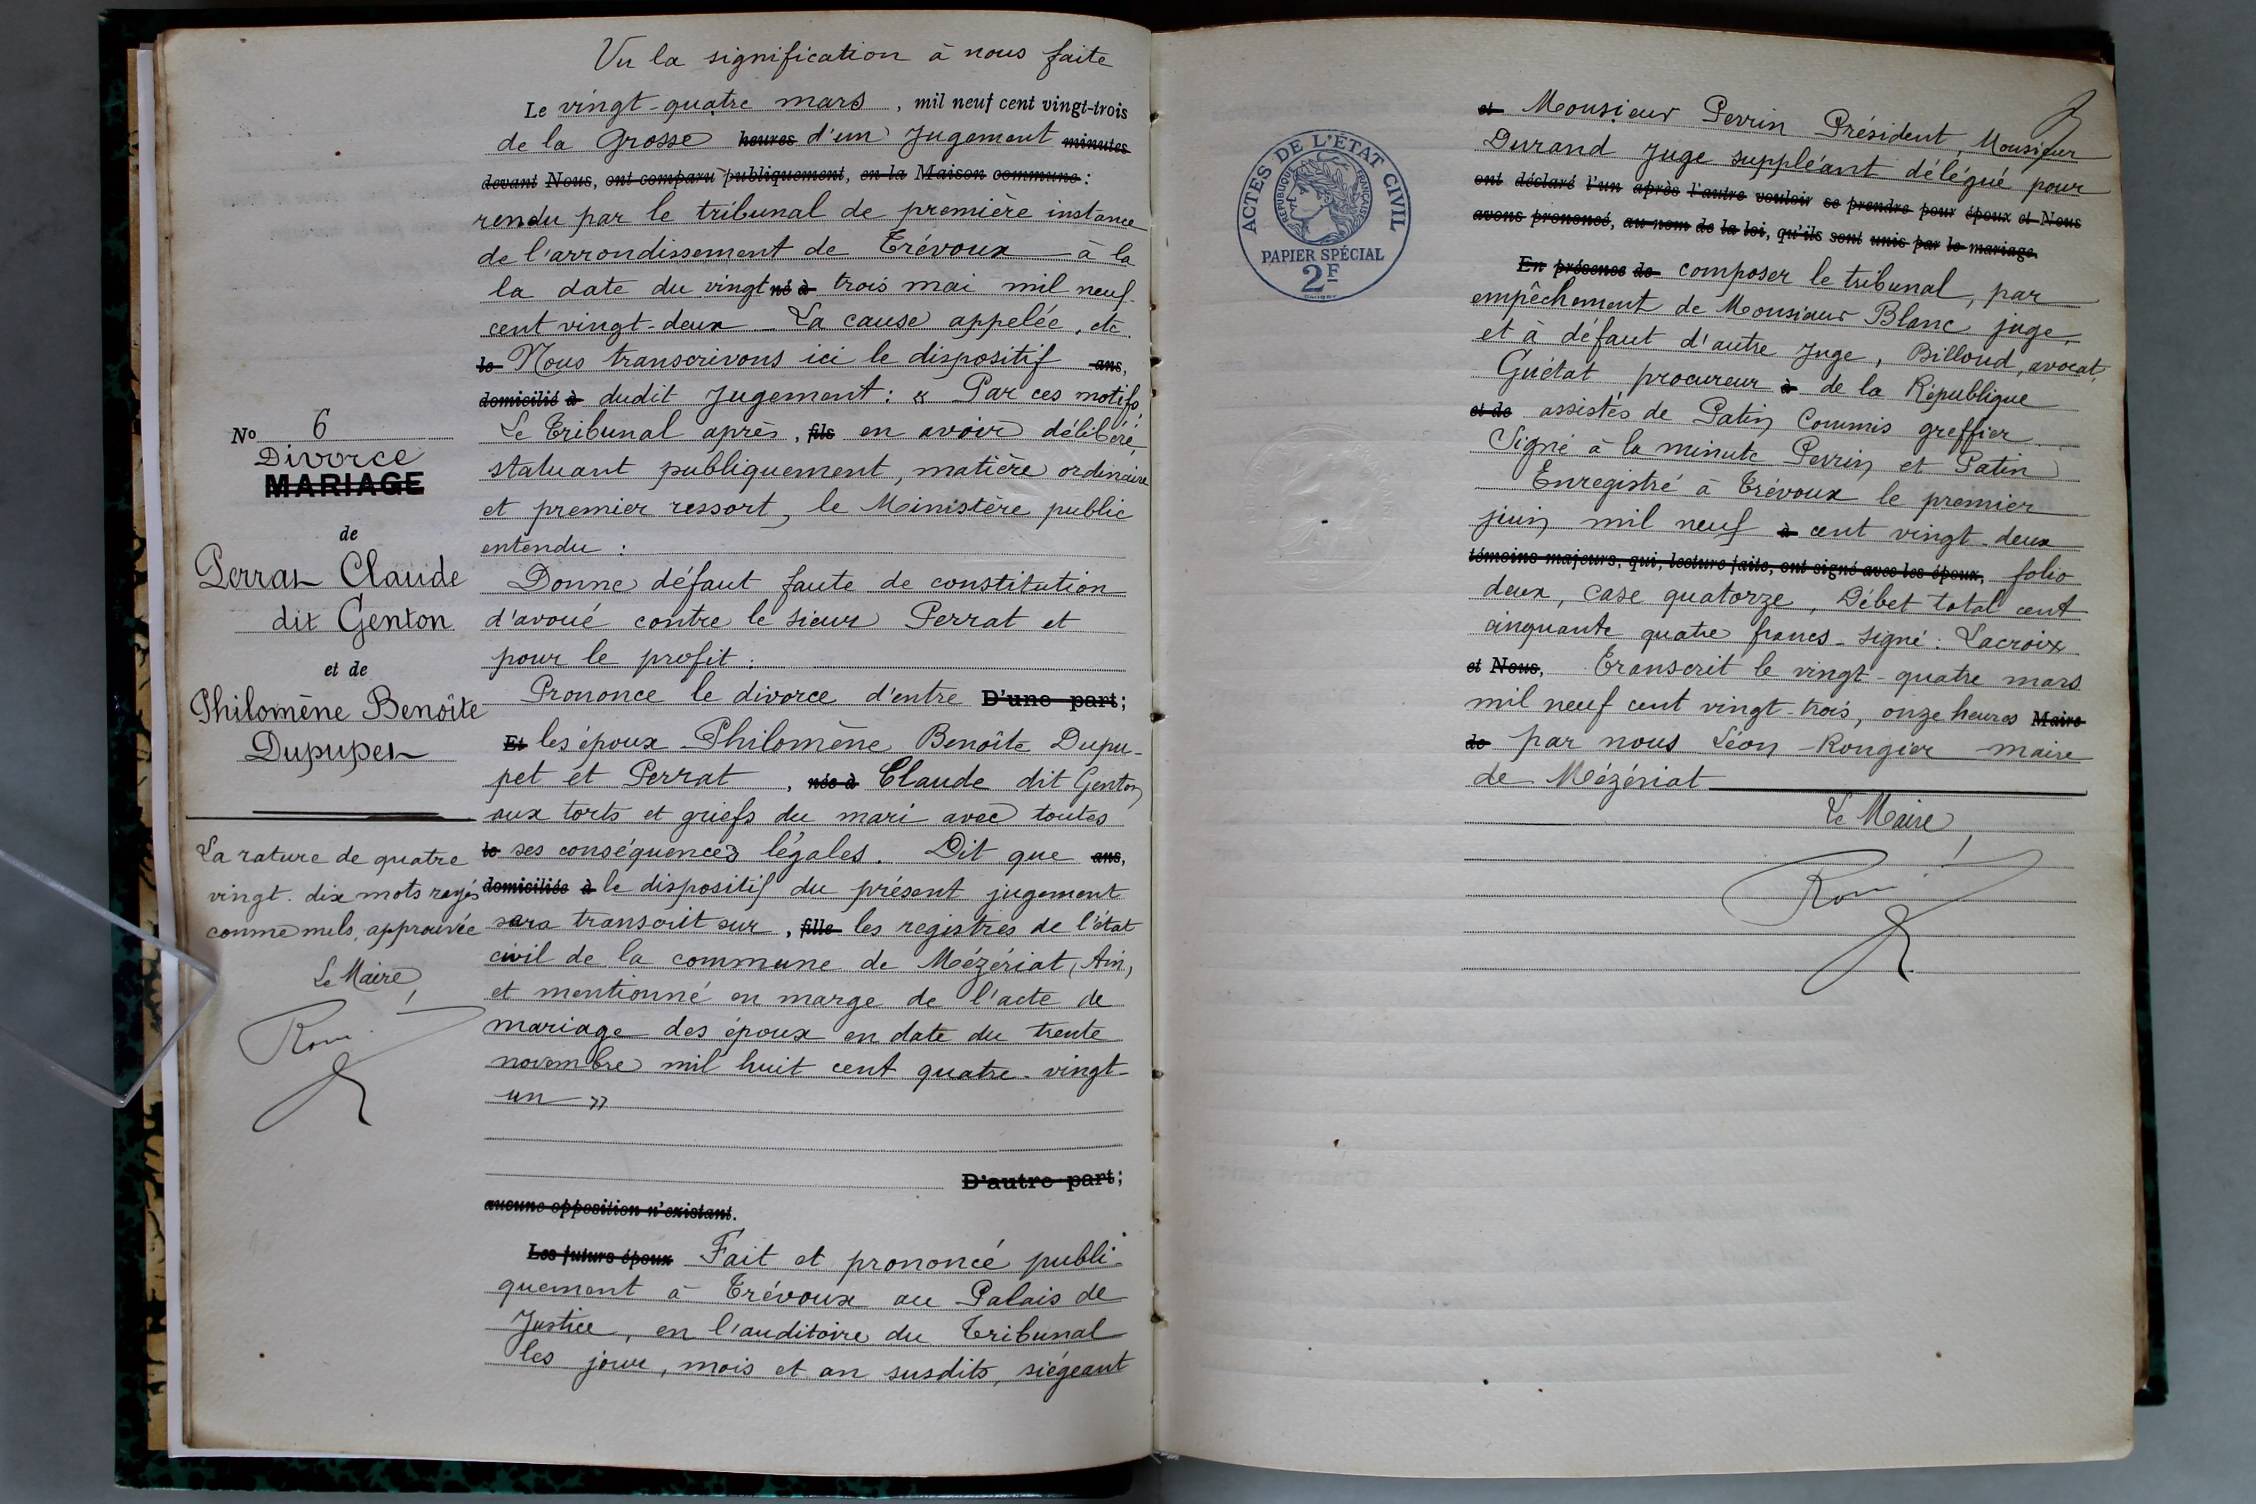 Vu la signification à nous faite
Le vingt-quatre mars, mil neuf cent vingt-trois
de la Grosse heures d'un Jugement minutes
devant Nous, ont comparu publiquement, en la Maison commune :
rendu par le tribunal de première instance
de l'arrondissement de Trévoux à la
la date du vingt né à trois mai mil neuf
cent vingt-deux La cause appelée, etc
le Nous transcrivons ici le dispositif ans,
domicilié à dudit Jugement : « Par ces motifs,
Le Tribunal après, fils en avoir délibéré,
statuant publiquement, matière ordinaire
et premier ressort, le Ministère public
entendu :
Donne défaut faute de constitution
d'avoué contre le sieur Perrat et
pour le profit :
Prononce le divorce d'entre D'une part;
Et les époux Philomène Benoîte Dupu-
pet et Perrat, née à Claude dit Genton
aux torts et griefs du mari avec toutes
le ses conséquences légales. Dit que ans,
domiciliée à le dispositif du présent jugement
sera transcrit sur, fille les registres de l'état
civil de la commune de Mézériat, Ain,
et mentionné en marge de l'acte de
mariage des époux en date du trente
novembre mil huit cent quatre-vingt-
un »
D'autre part;
aucune opposition n'existant.
Les futurs époux Fait et prononcé publi-
quement à Trévoux au Palais de
Justice, en l'auditoire du Tribunal
les jour, mois et an susdits, siégeant
No 6
Divorce
MARIAGE
de
Perrat Claude
dit Genton
et de
Philomène Benoîte
Dupupet
La rature de quatre
vingt-dix mots rayés
comme nuls, approuvée
Le Maire,
et Monsieur Perrin Président, Monsieur
Durand Juge suppléant délégué pour
ont déclaré l'un après l'autre vouloir se prendre pour époux et Nous
avons prononcé, au nom de la loi, qu'ils sont unis par le mariage.
En présence de composer le tribunal, par
empêchement de Monsieur Blanc juge,
et à défaut d'autre Juge, Billoud, avocat,
Guétat, procureur à de la République
et de assistés de Patin Commis greffier
Signé à la minute Perrin et Patin
Enregistré à Trévoux le premier
juin mil neuf à cent vingt-deux
témoins majeurs, qui, lecture faite, ont signé avec les époux, folio
deux, case quatorze, Débet total cent
cinquante quatre francs - signé : Lacroix
et Nous, Transcrit le vingt-quatre mars
mil neuf cent vingt-trois, onze heures Maire
de par nous Léon Rongier maire
de Mézériat
Le Maire,
ACTES DE L'ÉTAT CIVIL
RÉPUBLIQUE FRANÇAISE
PAPIER SPÉCIAL
2F